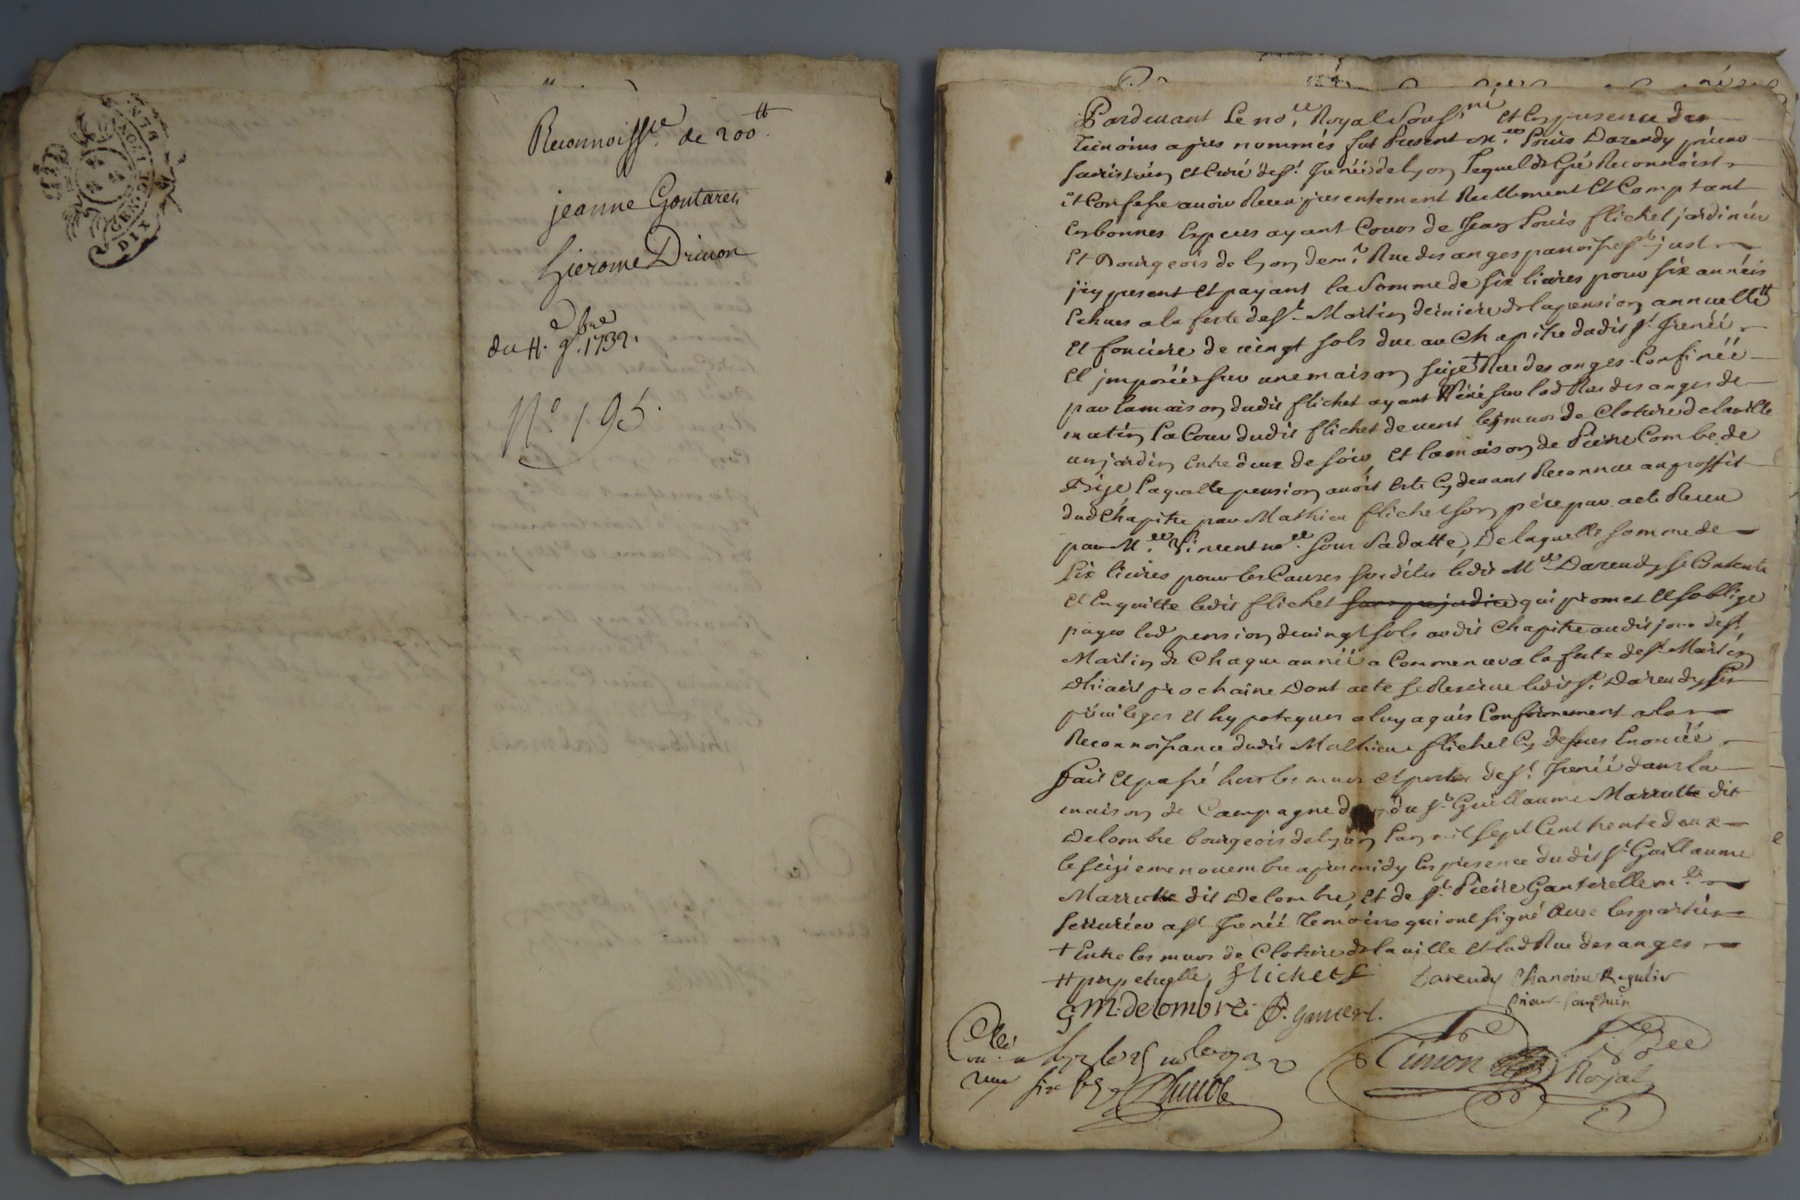 GEN. DE LION
DIX
Reconnoiss.ce de 200tt
jeanne Goutaret
hierome Drivon
du 11.e 9.bre 1732.
N.o 195.
Pardevant Le no.re Royal Soussi.né et En presence des
Temoins apres nommés fut Present M.re Loüis Darendy prieur
Sacristain et Curé de St. Irenée de Lyon Lequel de Gré Reconnoist
et Confesse avoir Receu presentement Reellement et Comptant
En bonnes Especes ayant Cours de Jean Louis flichet jardinier
Et Bourgeois de Lyon dem.t Rue des anges paroisse St. just
icy present et payant la Somme de Six livres pour Six années
Echues a la feste de St. Martin derniere de la pension annuelle tt
Et fonciere de vingt sols due au Chapitre dudit St. Irenée
Et imposée sur une maison sise + Rue des anges Confinée
par la maison dudit flichet ayant sur lad Rue des anges de
matin La Cour dudit flichet de vent les murs de Cloture de la ville
un jardin Entre deux de soir, et la maison de Pierre Combe de
Bize Laquelle pension avoit Esté Cy devant Reconnue au proffit
dud Chapitre par Mathieu flichet son pere par acte Receu
par M.re Vincent no.re Sous Sa datte, De laquelle somme de
Six livres pour les Causes Susdites ledit M.re Darendy se Contente
Et En quitte ledit flichet sans prejudice qui promet et soblige
payer lad pension de vingt sols audit Chapitre audit jour de St.
Martin de Chaque année a Commencer a la feste de St. Martin
Dhiver prochaine Dont acte se Reserve ledit Sr. Darendy ses
privileges Et hypoteques a luy aquis Conformement a la
Reconnoissance dudit Mathieu flichet Cy dessus Enoncée
fait et passé hors les murs et portes de St. Irenée dans la
maison de Campagne du Sr. Guillaume Marrutte dit
Delombre bourgeois de Lyon Lan mil sept Cent trente deux
le seizieme novembre apres midy En presence dudit Sr. Guillaume
Marrutte dit Delombre, et de Sr. Pierre Ganterelle m.re
Serrurier a St. Irenée Temoins qui ont signé avec les parties
+ Entre les murs de Cloture de la ville et lad Rue des anges
tt perpetuelle, flichet Darendy Chanoine Regulier
prieur
GM: delombre P.
Cllé
a Lyon le 25 nbre 1732
Royal